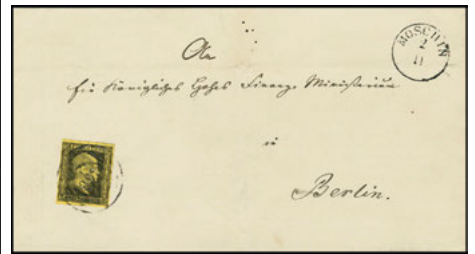 MOSCHIN
2
11
An
Ein Königliches Hohes Finanz-Ministerium
in
Berlin.